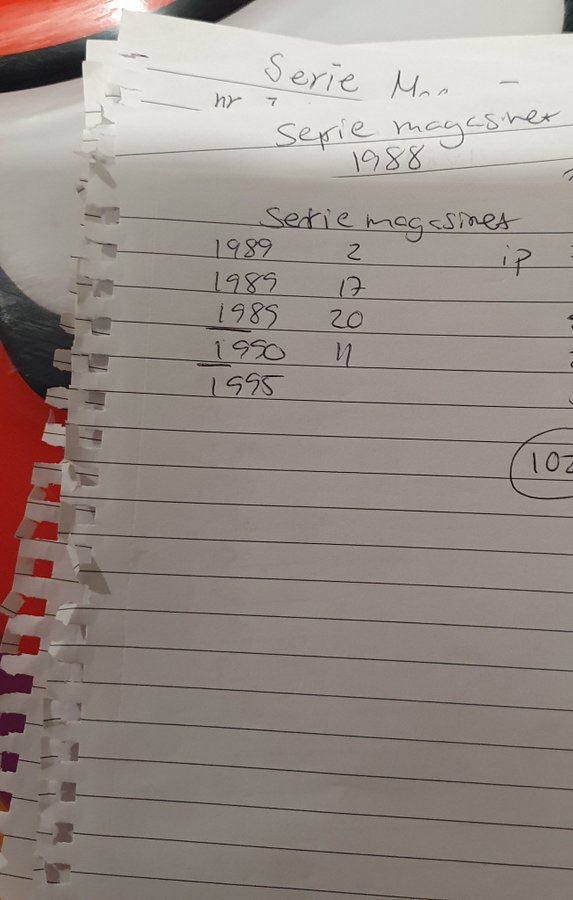 Serie
nr 7
Serie magasinet
1988
Serie magasinet
1989 2 ip
1989 17
1989 20
1990 11
1995
102